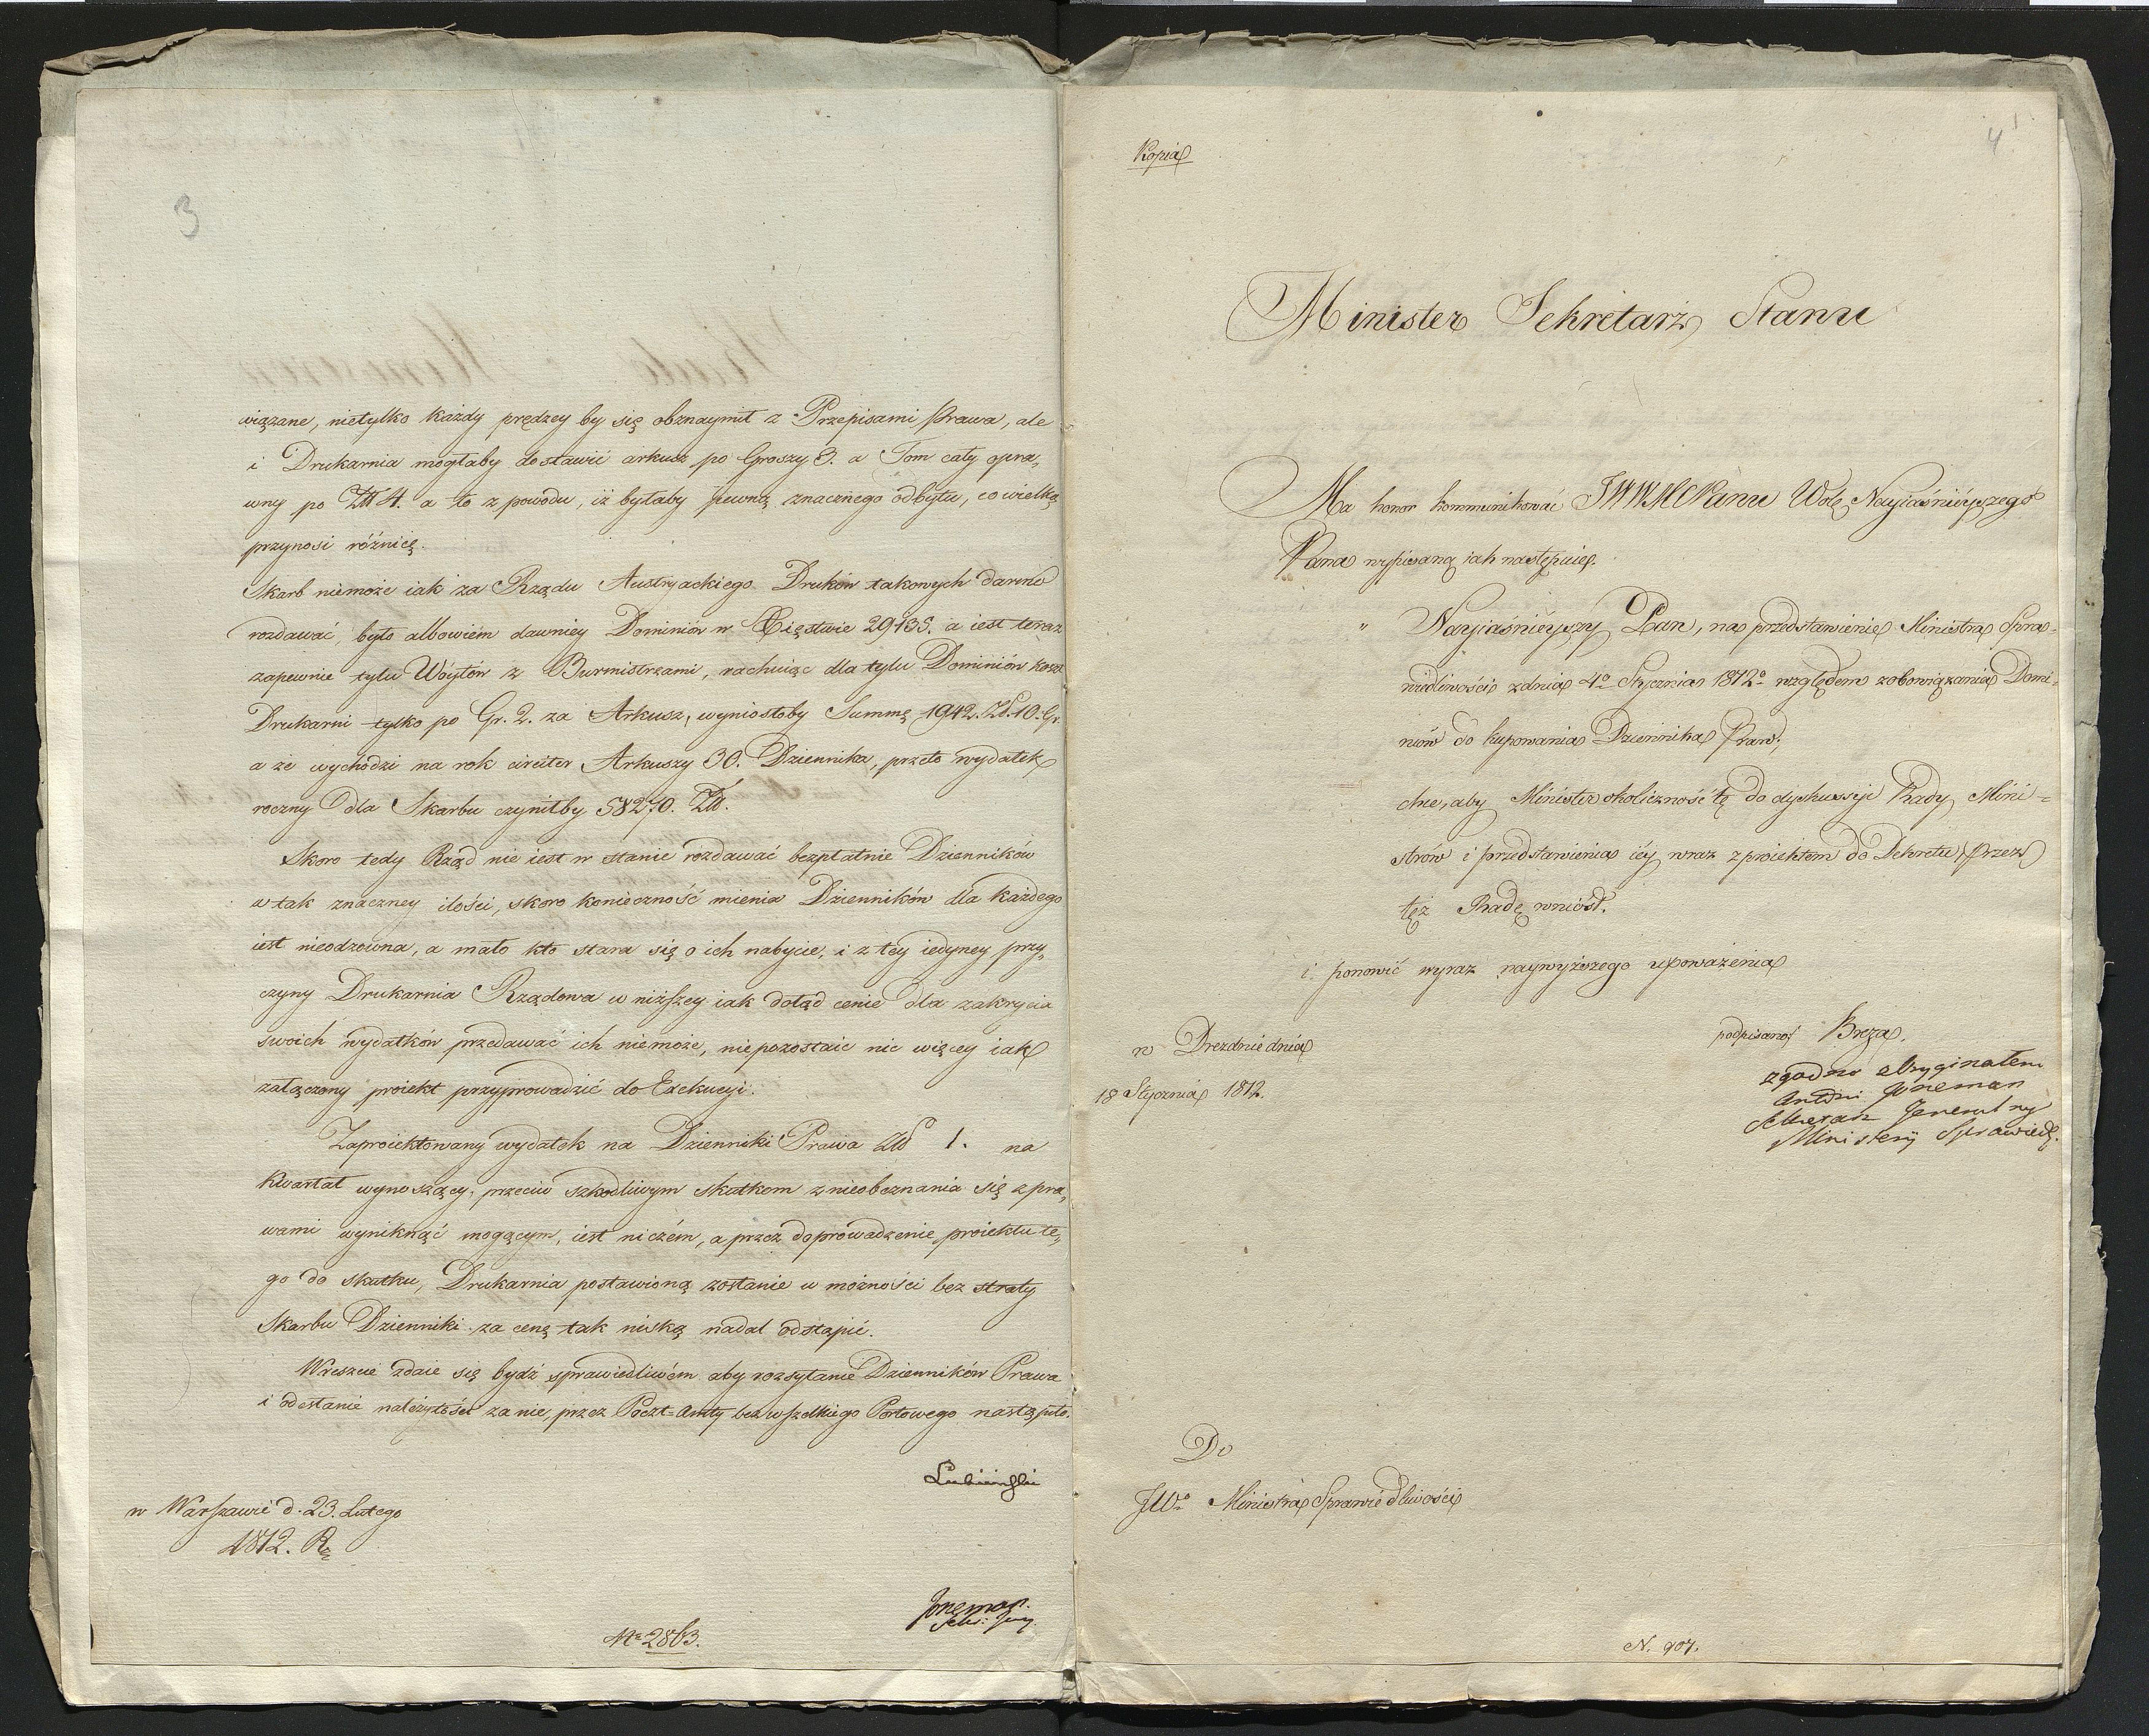 3
wiązane, nietylko każdy prędzey by się obznaymił z Przepisami Prawa, ale
i Drukarnia mogłaby dostawić arkusz po Groszy 3. a Tom cały opra„
wny po Złł 4. a to z powodu, iż byłaby pewną znacznego odbytu, co wielką
przynosi różnicę.
Skarb niemoże iak za Rządu Austryackiego Druków takowych darmo
rozdawać, było albowiem dawniey Dominiów w Xięstwie 29135. a iest teraz
zapewnie tylu Wóytów z Burmistrzami, rachuiąc dla tylu Dominiów koszt
Drukarni tylko po Gr. 2. za Arkusz, wyniosłoby Summę 1942. Zł. 10. Gr.
a że wychodzi na rok circiter Arkuszy 30. Dziennika, przeto wydatek
roczny dla Skarbu czyniłby 58270. Złł.
Skoro tedy Rząd nie iest w stanie rozdawać bezpłatnie Dzienników
w tak znaczney ilości, skoro konieczność mienia Dzienników dla każdego
iest nieodzowna, a mało kto stara się o ich nabycie, i z tey iedyney przy„
czyny Drukarnia Rządowa w niższey iak dotąd cenie dla zakrycia
swoich wydatków przedawać ich niemoże, niepozostaie nic więcey iak
załączony proiekt przyprowadzić do Exekucyi.
Zaproiektowany wydatek na Dzienniki Prawa Zł 1. na
Kwartał wynoszący, przeciw szkodliwym skutkom z nieobeznania się z pra„
wami wyniknąć mogącym, iest niczém, a przez doprowadzenie proiektu te„
go do skutku, Drukarnia postawioną zostanie w możności bez straty
Skarbu Dzienniki za cenę tak niską nadal odstąpić.
Wreszcie zdaie się bydź sprawiedliwém aby rozsyłanie Dzienników Prawa
i odesłanie należytości za nie, przez Poczt=Amty bez wszelkiego Portowego nastąpiło.
Lubieński
w Warszawie d. 23. Lutego
1812. R.
Joneman.
Sekr: Jen.
No 2863.
4
Kopia
Minister Sekretarz Stanu
Ma honor kommunikować JWWMC Panu Wolę Nayiaśnieyszego
Pana wypisaną iak następuie.
" Nayiaśnieyszy Pan, na przedstawienie Ministra Spra=
wiedliwości z dnia 4o Stycznia 1812o względem zobowiązania Domi=
niów do kupowania Dziennika Praw;
chce, aby Minister okoliczność tę do dyskussyi Rady Mini=
strów i przedstawienia iéy wraz z proiektem do Dekretu, przez
też Radę wniósł.
i ponowić wyraz naywyższego upoważenia
podpisano Breza.
w Dreznie dnia
18 Stycznia 1812.
zgodno z Oryginałem
Antoni Joneman
Sekretarz Jeneralny
Ministerij Sprawiedl.
Do
JWo Ministra Sprawiedliwości
N. 907.